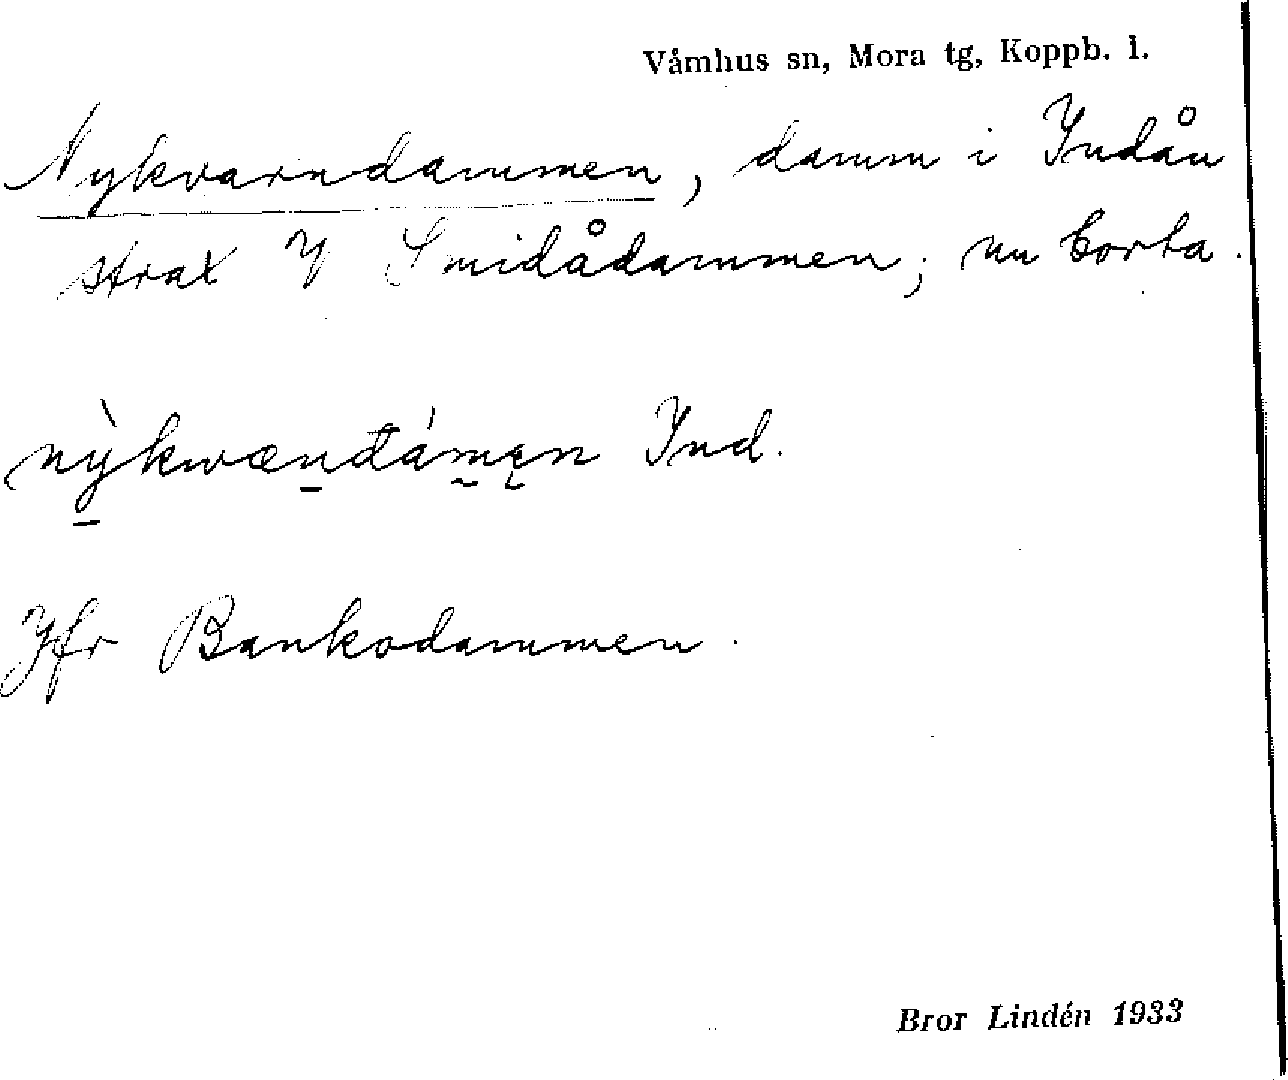 Våmhus sn, Mora tg, Koppb. l.
Nykvarndammen, damm i Indån
strax V Smidådammen; nu borta.
Ind.
Jfr Bankodammen.
Bror Lindén 1933